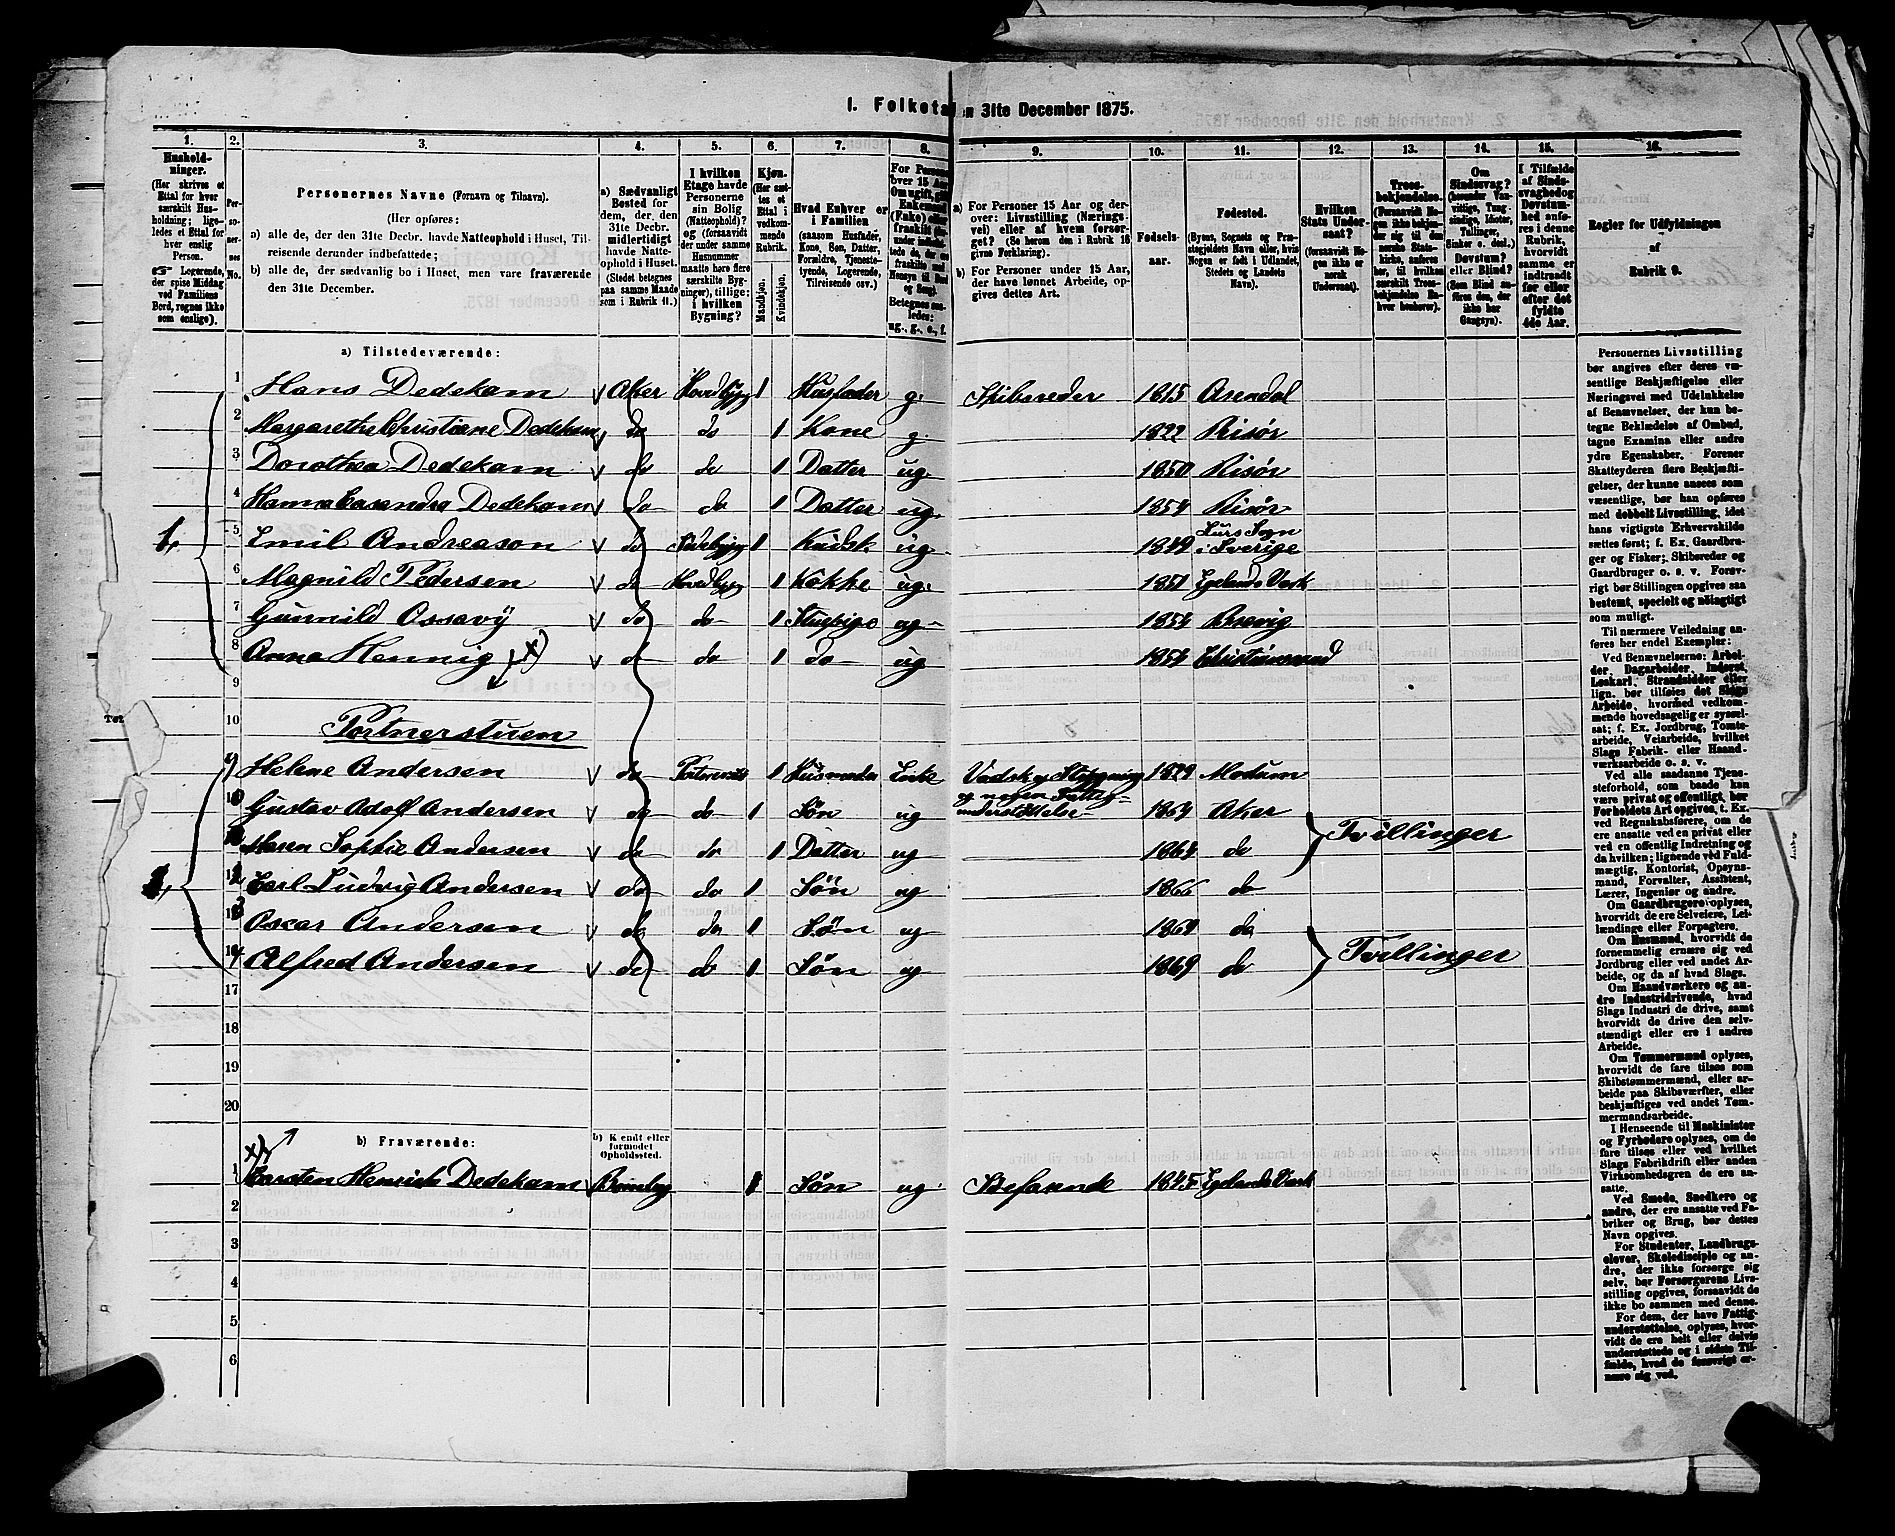 I. Folketal den 31te December 1875.
1. 2. 3. 4. 5. 6. 7. 8. 9. 10. 11. 12. 13. 14. 15. 16.
Hushold-
ninger.
(Her skrives et
Ettal for hver
særskilt Hus-
holdning; lige-
ledes et Ettal for
hver enslig
Person.
☞ Logerende,
der spise Middag
ved Familiens
Bord, regnes ikke
som enslige).
Personernes Navne (Fornavn og Tilnavn).
(Her opføres:
a) alle de, der den 31te Decbr. havde Natteophold i Huset, Til-
reisende derunder indbefattede;
b) alle de, der sædvanlig bo i Huset, men vare fraværende
den 31te December.
a) Sædvanligt
Bosted for
dem, der den
31te Decbr.
midlertidigt
havde Natte-
ophold i Huset.
(Stedet betegnes
paa samme Maade
som i Rubrik 11.)
I hvilken
Etage havde
Personerne
sin Bolig
(Natteophold)?
og (forsaavidt
der under samme
Husnummer
maatte høre flere
særskilte Byg-
ninger), tillige:
i hvilken
Bygning?
Kjøn.
(Her sæt-
tes et
Ettal i
vedkom-
mende
Rubrik.
Mandkjøn.
Kvindekjøn.
Hvad Enhver er
i Familien
(saasom Husfader,
Kone, Søn, Datter,
Forældre, Tjeneste-
tyende, Logerende,
Tilreisende osv.)
a) For Personer 15 Aar og der-
over: Livsstilling (Nærings-
vei) eller af hvem forsør-
get? (Se herom den i Rubrik 16
givne Forklaring).
b) For Personer under 15 Aar,
der have lønnet Arbeide, op-
gives dettes Art.
Fødsels-
aar.
Fødested.
(Byens, Sognets og Præ-
stegjeldets Navn eller, hvis
Nogen er født i Udlandet,
Stedets og Landets
Navn).
Hvilken
Stats Under-
saat?
(forsaavidt No-
gen ikke er
norsk
Undersaat).
Troes-
bekjendelse.
(Forsaavidt No-
gen ikke be-
kjender sig til
den norske Stats-
kirke, anføres
her, til hvilken
særskilt Troes-
bekjendelse En-
hver henhører).
Om
Sindssvag?
(herunder Van-
vittige, Tung-
sindige, Idioter,
Tullinger,
Sinker o. desl.)
Døvstum?
eller Blind?
(Som Blind an-
føres den, der
ikke har
Gangsyn).
I Tilfælde
af Sinds-
svaghed og
Døvstum-
hed anfø-
res i denne
Rubrik,
hvorvidt
samme er
indtraadt
før eller
efter det
fyldte
4de Aar.
Regler for Udfyldningen
af
Rubrik 9.
a) Tilstedeværende:
1 Hans Dedekam Aker Hovedbygg 1 Husfader g. Skibsreder 1815 Arendal
2 Margarethe Christiane Dedekam do do 1 Kone g. 1822 Risør
3 Dorothea Dedekam do do 1 Datter ug 1850 Risør
4 Hanna Casandra Dedekam do do 1 Datter ug. 1854 Risør
Lurs Sogn
1, 5 Emil Andreason do Sidebygg 1 Kudsk ug 1849 i Sverige
6 Magnild Pedersen do Hovedbygg 1 Kokke ug. 1851 Egelands Værk
7 Gunnild Ossavy do do 1 Stuepige ug 1854 Brevig
8 Anna Hennig x) d do 1 do ug 1854 Christianssand
9
10 Portnerstuen
9 Helene Andersen do 1 Husmoder Enke Vadsk og Strygning 1829 Modum
og nogen Fattig-
understøttelse
10 Gustav Adolf Andersen do do 1 Søn ug 1864 Aker
11 Maren Sophie Andersen do do 1 Datter ug 1864 do Tvillinger
2, 12 Carl Ludvig Andersen do do 1 Søn ug 1866 do
13 Oscar Andersen do do 1 Søn ug 1869 do
14 Alfred Andersen do do 1 Søn ug 1869 do Tvillinger
17
18
19
20
b) Fraværende:
b) Kjendt eller
formodet
Opholdssted.
x)
1 Karsten Henrich Dedekam Bombay 1 Søn ug. Søfarende 1845 Egelands Værk
2
3
4
5
6
Personernes Livsstilling
bør angives efter deres væ-
sentlige Beskjæftigelse eller
Næringsvei med Udelukkelse
af Benævnelser, der kun be-
tegne Beklædelse af Ombud,
tagne Examina eller andre
ydre Egenskaber. Forener
Skatteyderen flere Beskjæfti-
gelser, der kunne ansees som
væsentlige, bør han opføres
med dobbelt Livsstilling, idet
hans vigtigste Erhvervskilde
sættes først; f. Ex. Gaardbru-
ger og Fisker; Skibsreder og
Gaardbruger o. s. v. Forøv-
rigt bør Stillingen opgives saa
bestemt, specielt og nøiagtigt
som muligt.
Til nærmere Veiledning an-
føres her endel Exempler:
Ved Benævnelserne: Arbei-
der, Dagarbeider, Inderst,
Løskarl, Strandsidder eller
lign. bør tilføies det Slags
Arbeide, hvormed vedkom-
mende hovedsagelig er syssel-
sat; f. Ex. Jordbrug, Tomte-
arbeide, Veiarbeide, hvilket
Slags Fabrik- eller Haand-
værksarbeide o. s. v.
Ved alle saadanne Tjene-
steforhold, som baade kan
være privat og offentligt, bør
Forholdets Art opgives, t. Ex.
ved Regnskabsførere, om de
ere ansatte ved en privat eller
ved en offentlig Indretning og
da hvilken; lignende ved Fuld-
mægtig, Kontorist, Opsyns-
mand, Forvalter, Assistent,
Lærer, Ingeniør og andre.
Om Gaardbrugere oplyses,
hvorvidt de ere Selveiere, Lei-
lændinge eller Forpagtere.
Om Husmænd, hvorvidt de
fornemmelig ernære sig ved
Jordbrug eller ved andet Ar-
beide, og da af hvad Slags.
Om Haandværkere og an-
dre Industridrivende, hvad
Slags Industri de drive, samt
hvorvidt de drive den selv-
stændigt eller ere i andres
Arbeide.
Om Tømmermænd oplyses,
hvorvidt de fare tilsøs som
Skibstømmermænd, eller ar-
beide paa Skibsværfter, eller
beskjæftiges ved andet Tøm-
mermandsarbeide.
I Henseende til Maskinister
og Fyrbødere oplyses, om de
fare tilsøs eller ved hvilket
Slags Fabrikdrift eller anden
Virksomhedsgren de ere an-
satte.
Ved Smede, Snedkere og
andre, der ere ansatte ved Fa-
briker og Brug, bør dettes
Navn opgives.
For Studenter, Landbrugs-
elever, Skoledisciple og an-
dre, der ikke forsørge sig
selv, bør Forsørgerens Livs-
stilling opgives, forsaavidt de
ikke bo sammen med denne.
For dem, der have Fattig-
understøttelse, oplyses, hvor-
vidt de ere helt eller delvis
understøttede og i sidste Til-
fælde, hvad de forøvrigt er-
nære sig ved.